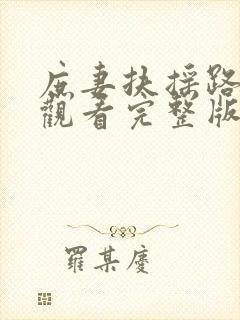 庶妻扶摇路
觀看完整版
羅某慶